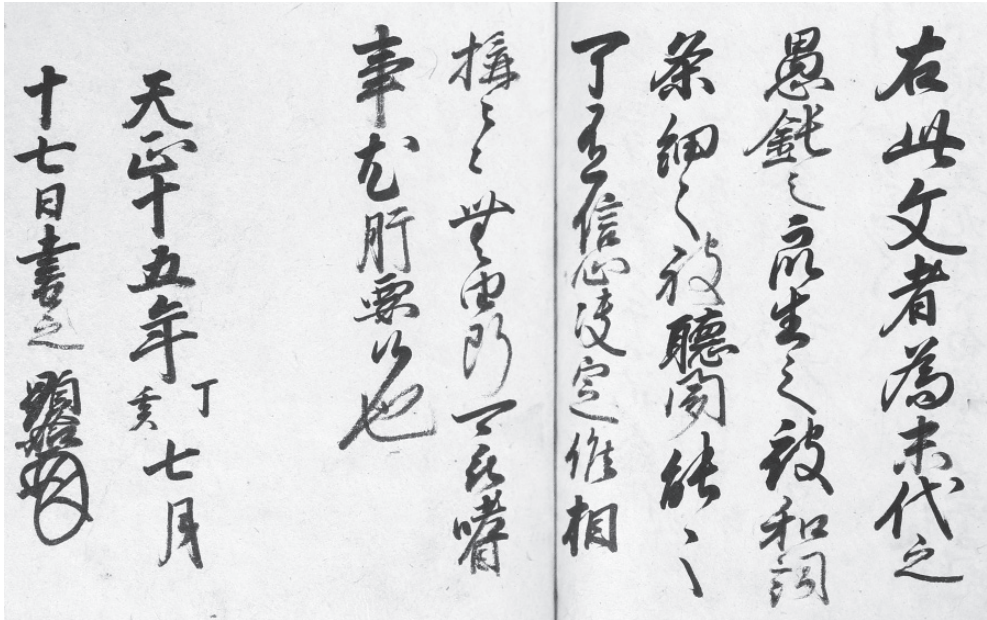 右此文者為末代之
愚鈍之衆生之被和詞
条細々被聴聞能々
可有信心決定候相
構々無由断可被嗜
事尤肝要候也
天正十五年丁亥七月
十七日書之 顕如